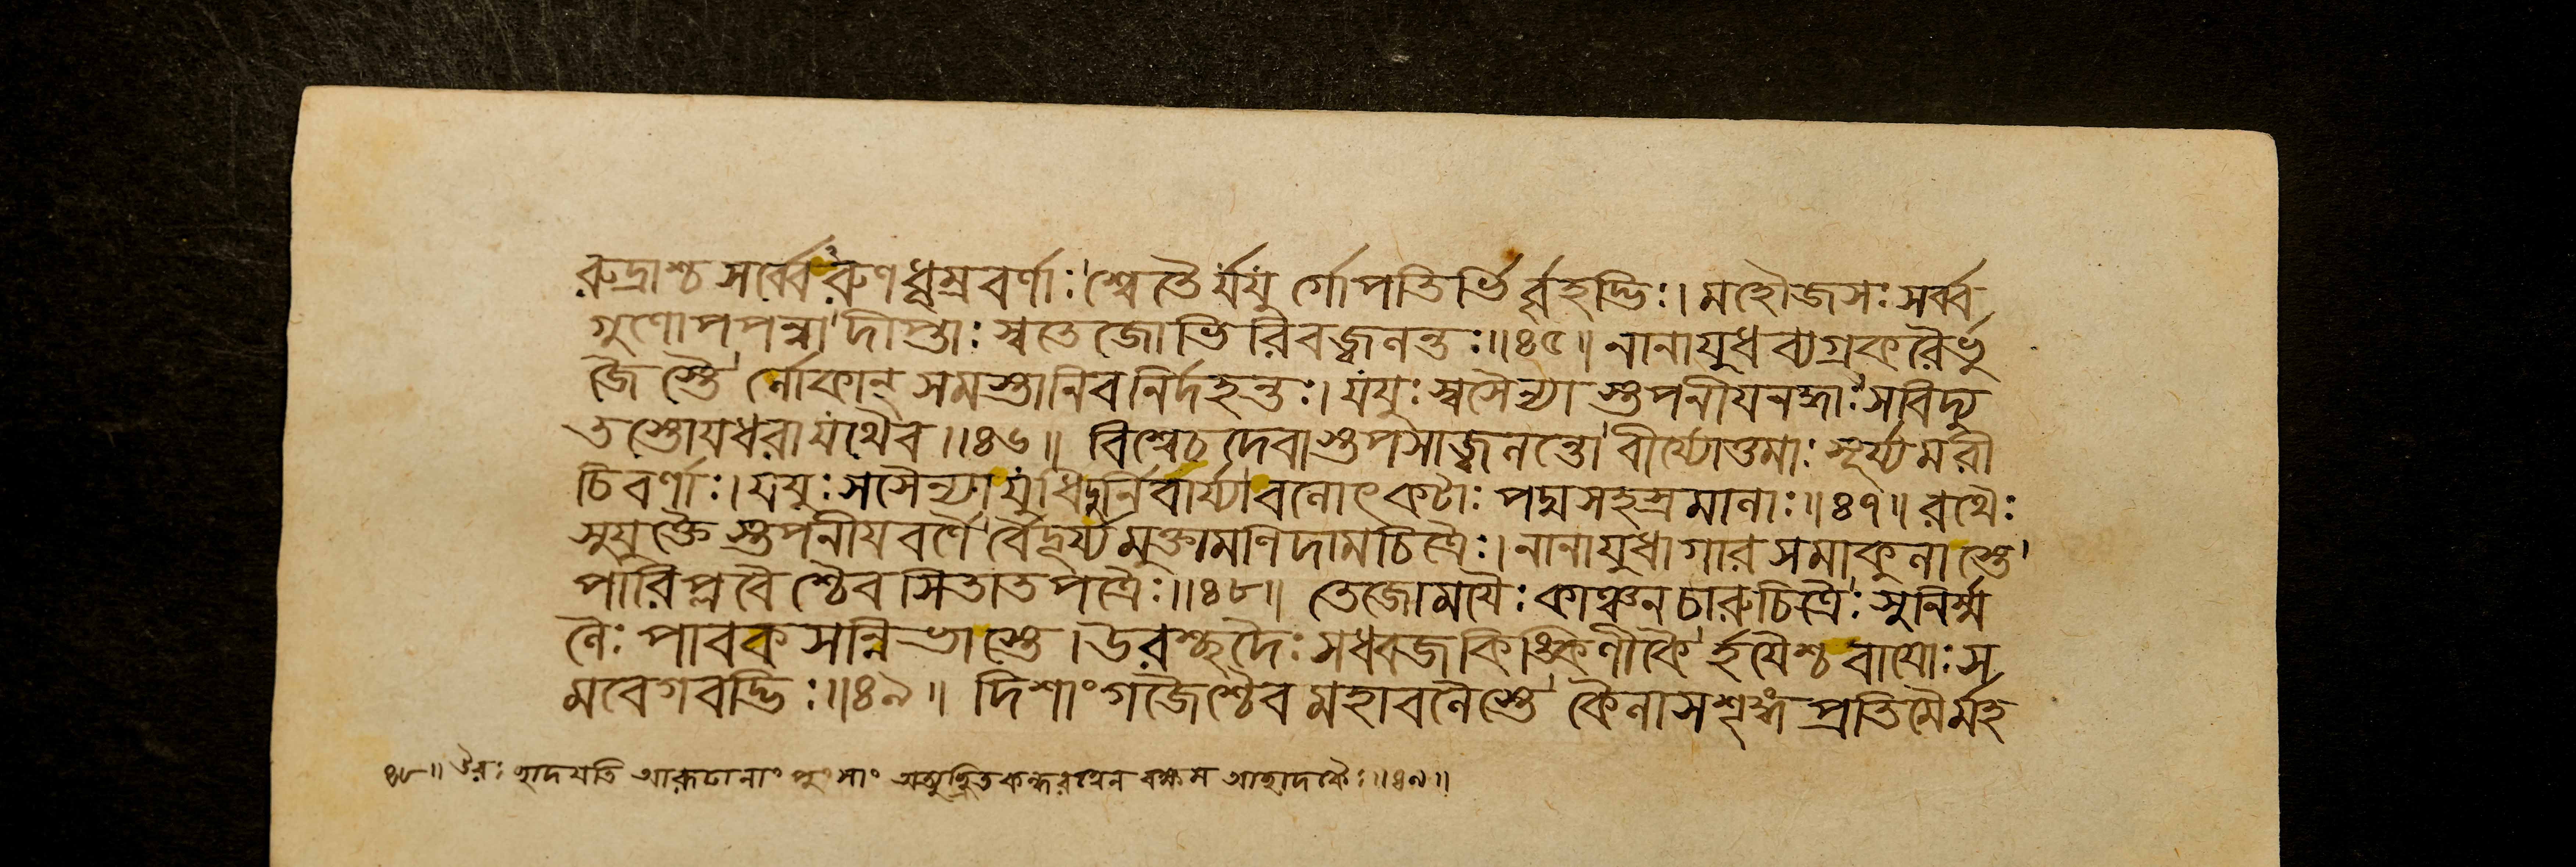 রুদ্রাশ্চ সর্ব্বেঽরুণধূম্রবর্ণাঃ শ্বেতৈর্যযু র্গোপতিভি র্বৃহদ্ভিঃ। মহৌজসঃ সর্ব্ব
গুণোপপন্না দীপ্তাঃ স্বতেজোভিরিবজ্বলন্তঃ॥৪৫॥ নানাযুধব্যগ্রকরৈর্ভু
জৈ স্তৈ র্লোকান্ সমস্তানিবনির্দহন্তঃ। যযুঃ স্বসৈন্যা স্তপনীযনদ্ধাঃ সবিদ্যু
তস্তোযধরাযথৈব॥৪৬॥ বিশ্বেচদেবাস্তপসাজ্বলন্তো বীর্য্যোত্তমাঃ সূর্য্যমরী
চিবর্ণাঃ। যযুঃ সসৈন্যাযুধিদুর্নিবার্য্যা বলোৎকটাঃ পদ্মসহস্রমালাঃ॥৪৭॥ রথৈঃ
সুযুক্তৈ স্তপনীযবর্ণৈ র্বৈদূর্য্যমুক্তামণিদামচিত্রৈঃ। নানাযুধাগারসমাকুলাস্তে
পারিপ্লবৈশ্চৈবসিতাতপত্রৈঃ॥৪৮॥ তেজোমযৈঃ কাঞ্চনচারুচিত্রৈঃ সুনির্ম্ম
লৈঃ পাবকসন্নিভাস্তে। উরশ্ছদৈঃ সধ্বজকিঙ্কিণীকৈ র্হযৈশ্চ বাযোঃ স
মবেগবদ্ভিঃ॥৪৯॥ দিশাং গজৈশ্চৈব মহাবলৈস্তে কৈলাসশৃঙ্গপ্রতিমৈর্মহ
৪৮॥ উরঃ ছাদযতি আরূঢানাং পুংসাং কন্ধরত্বেন বক্ষস আছাদকৈঃ॥৪৯॥